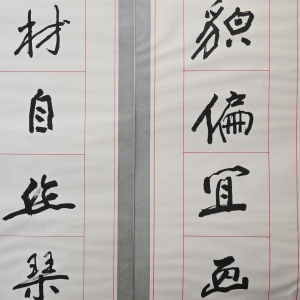 貌偏宜画
材自然琴